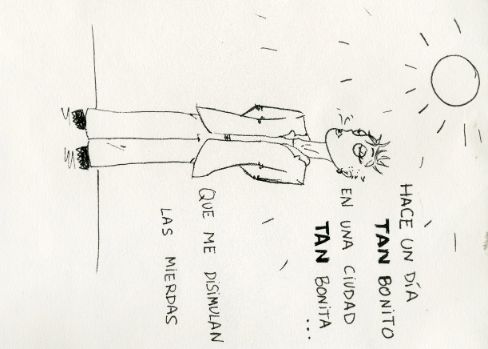 HACE UN DÍA
TAN BONITO
EN UNA CIUDAD
TAN BONITA...
QUE ME DISIMULAN
LAS MIERDAS